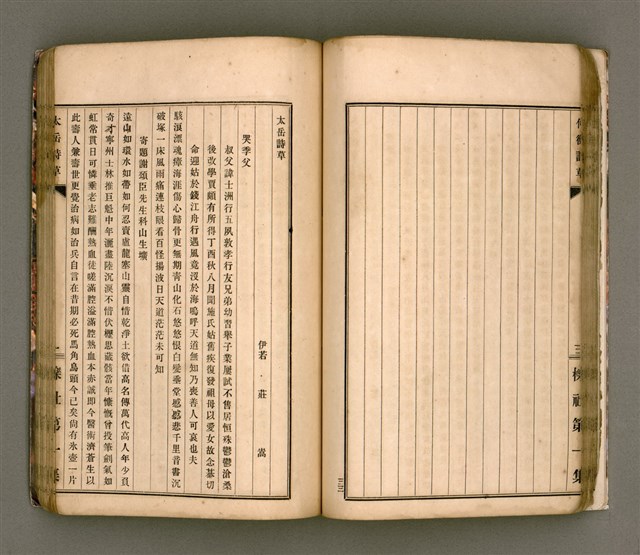 伊若 莊嵩
太岳詩草
哭季父
叔父諱士洲行五夙敦孝行友兄弟幼習舉子業屢試不售居恒殊鬱鬱滄桑
後改學賈頗有所得丁酉秋八月聞施氏姑舊疾復發祖母以愛女故念綦切
命迎姑於錢江舟行遇風竟沒於海嗚呼天道無知乃喪善人可哀也夫
駭浪漂魂瘴海涯傷心歸骨更無期青山化石悠悠恨白髮垂堂慼慼悲千里音書沉
破塚一床風雨痛連枝眼看百怪揚波日天道茫茫未可知
寄題謝頌臣先生科山生壙
遠山如環水如帶如何忍賣盧龍塞山靈自惜乾淨土欲借高名傳萬代高人年少負
奇才寧州士林推巨魁中年灑盡陸沉淚不惜伏櫪思歲骸當年慷慨曾投筆劍氣如
虹常貫日可憐垂老志難酬熱血徒嗟滿腔溢滿腔熱血本赤誠即今醫術濟蒼生以
此壽人兼壽世更覺治病如治兵自言在昔期必死馬角烏頭今已矣尙有氷壺一片
太岳詩草
一
櫟社第一集
三二
三
櫟社第一集